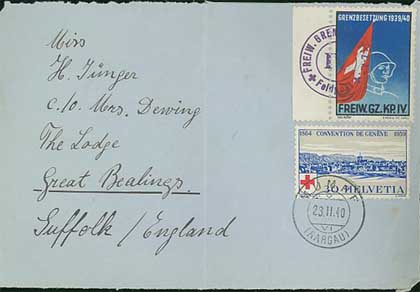 Miss
H. Jünger
c/o. Mrs. Dewing
The Lodge
Great Bealings.
Suffolk / England
GRENZBESETZUNG 1939/40
FREIW. GZ. KP. IV.
FREIW. GREN
Feld
1864 CONVENTION DE GENÈVE 1939
30 HELVETIA
23.II.40
VI
(AARGAU)